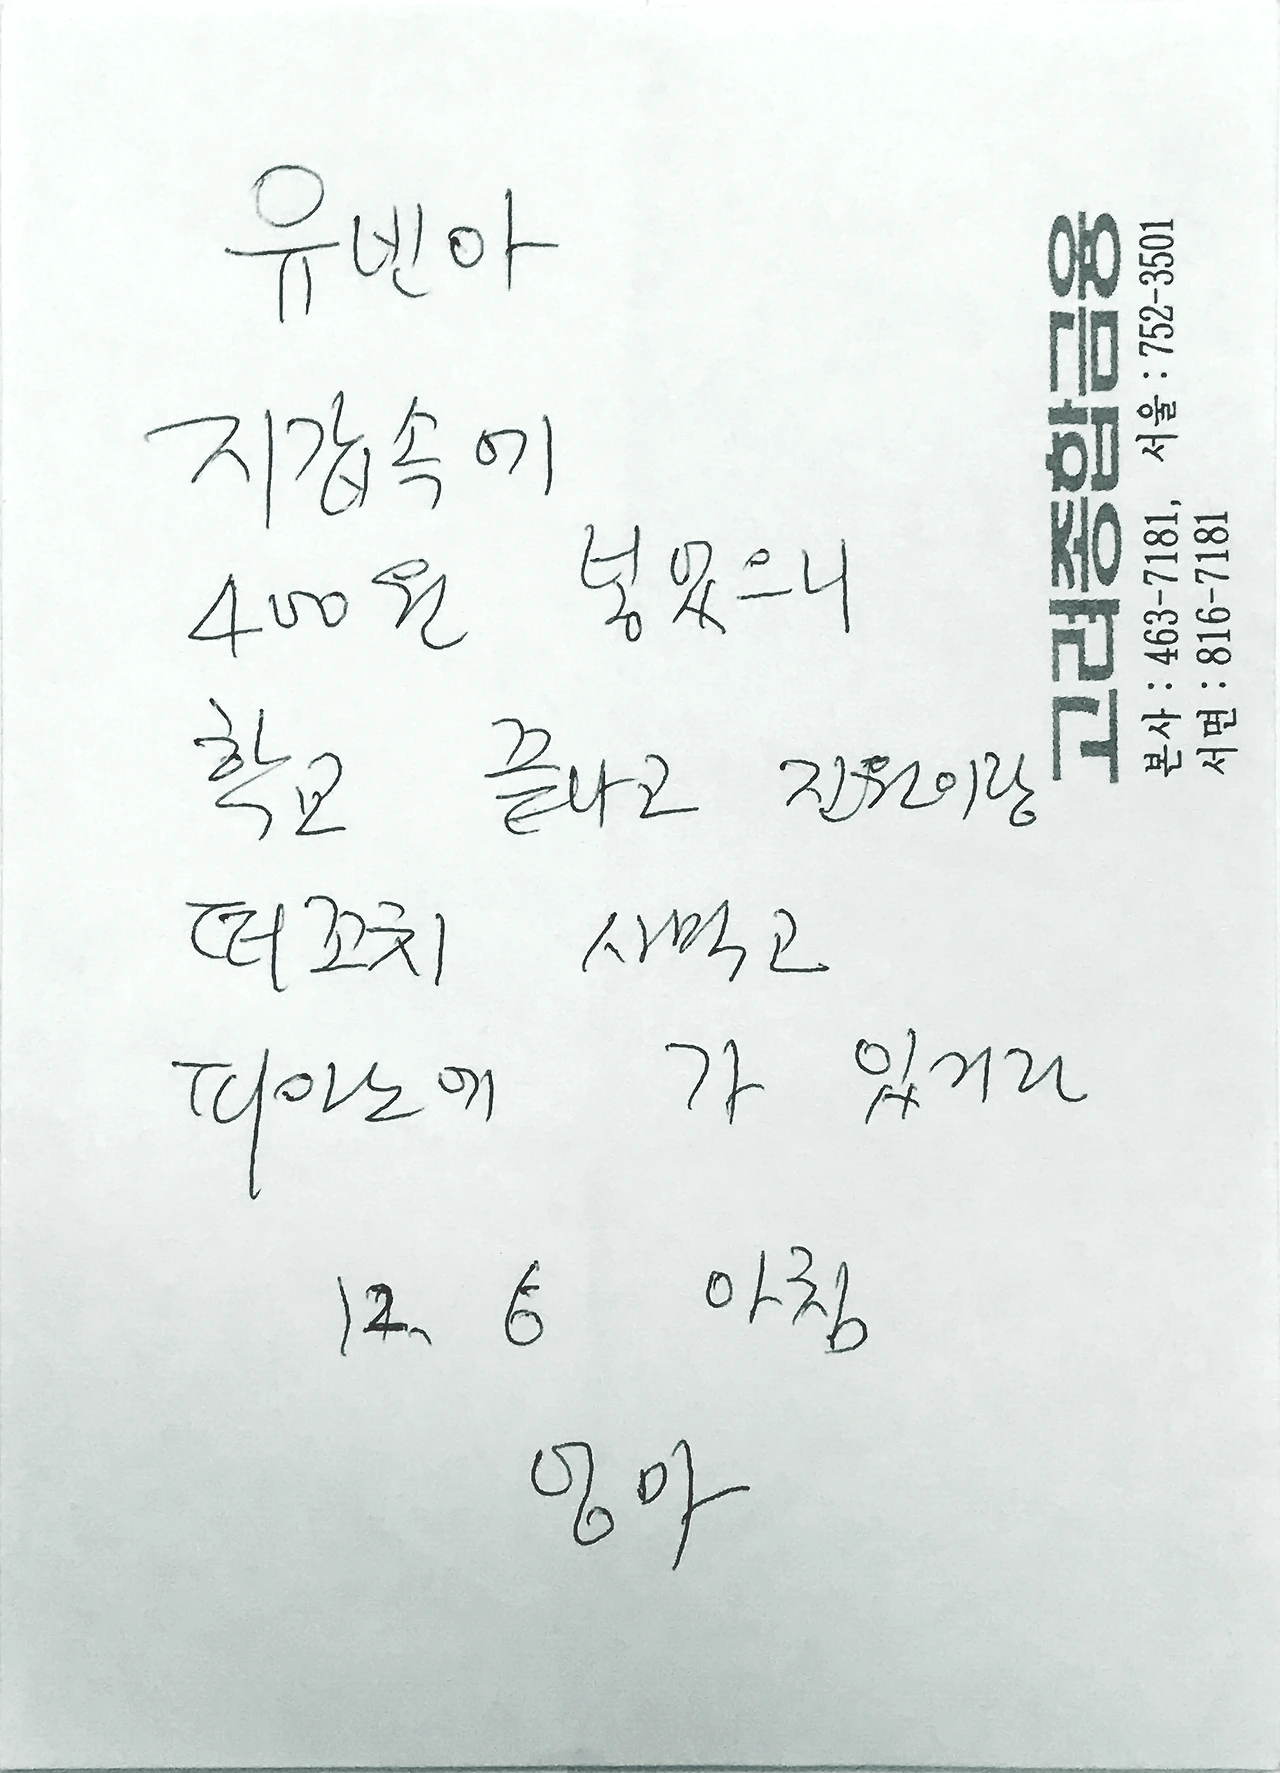 유빈아
지갑속에
400원 넣었으니
학교 끝나고 진원이랑
떡꼬치 사먹고
피아노에 가 있거라
12. 6 아침
엄마
고려종합금융
본사 : 463-7181, 서울 : 752-3501
서면 : 816-7181